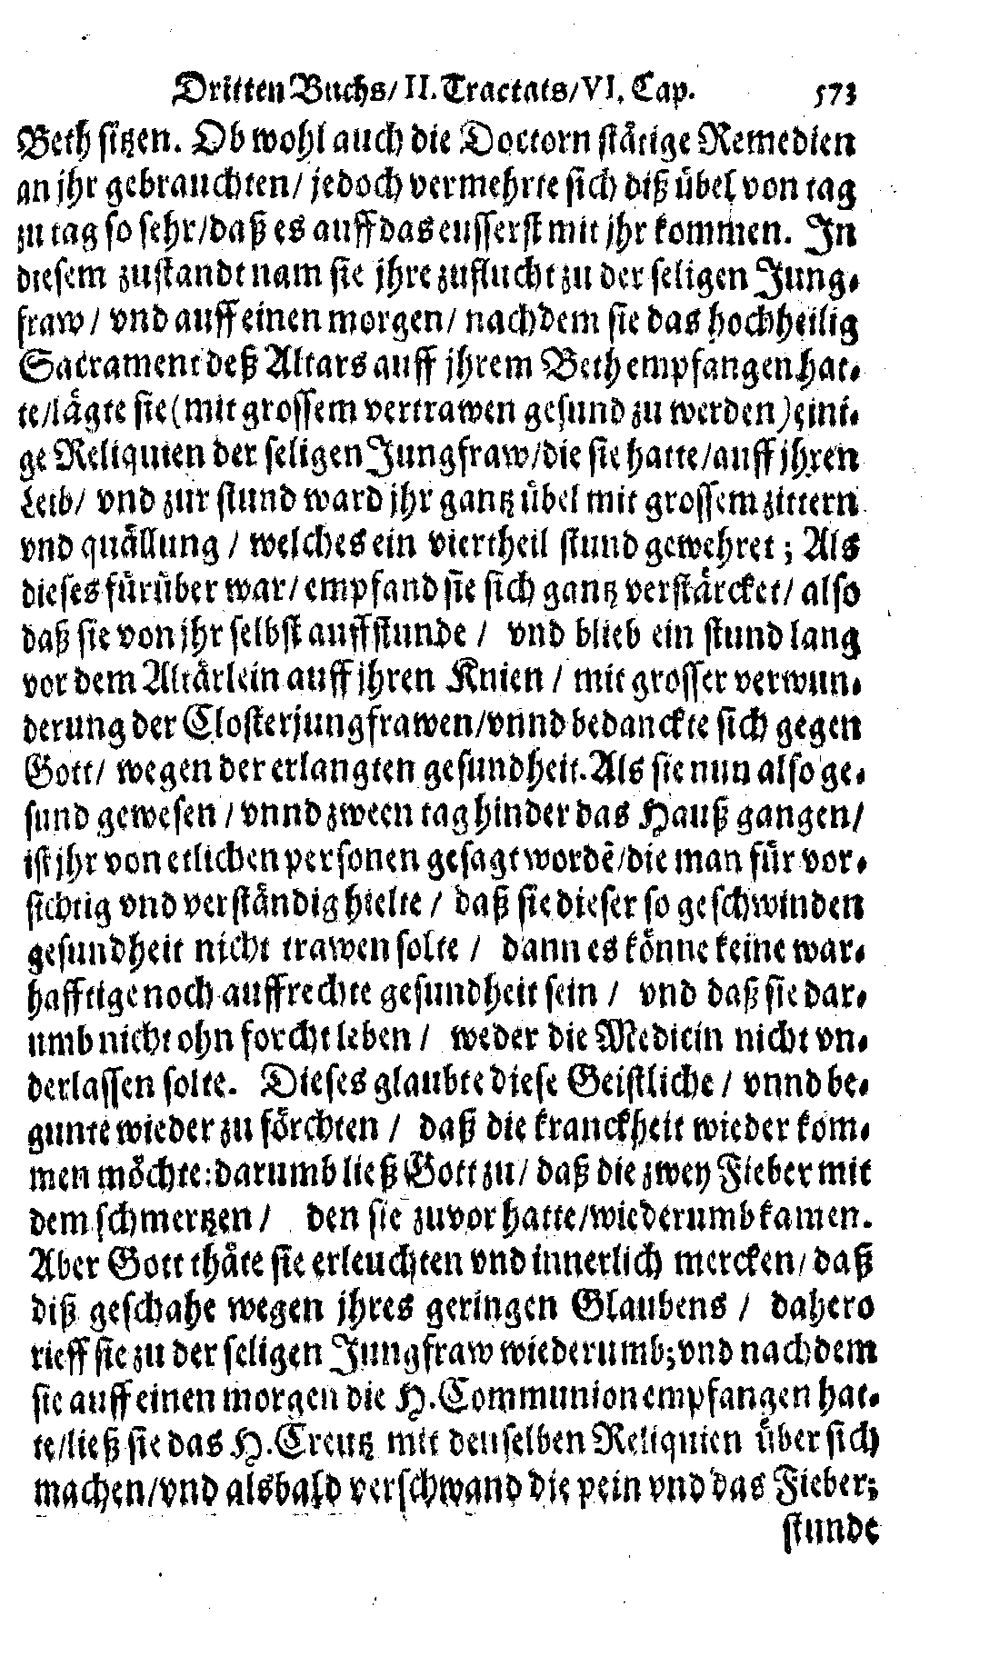 Dritten Buchs/ II. Tractats/ VI. Cap. 573
Beth sitzen. Ob wohl auch die Doctorn stätige Remedien
an jhr gebrauchten/ jedoch vermehrte sich diß übel von tag
zu tag so sehr/ daß es auff das eusserst mit jhr kommen. In
diesem zustandt nam sie jhre zuflucht zu der seligen Jung-
fraw/ vnd auff einen morgen/ nachdem sie das hochheilig
Sacrament deß Altars auff jhrem Beth empfangen hat-
te/ lägte sie (mit grossem vertrawen gesund zu werden) eini-
ge Reliquien der seligen Jungfraw/ die sie hatte/ auff jhren
Leib/ vnd zur stund ward jhr gantz übel mit grossem zittern
vnd quällung/ welches ein viertheil stund gewehret; Als
dieses fürüber war/ empfand sie sich gantz verstärcket/ also
daß sie von jhr selbst auffstunde/ vnd blieb ein stund lang
vor dem Altärlein auff jhren Knien/ mit grosser verwun-
derung der Closterjungfrawen/ vnnd bedanckte sich gegen
Gott/ wegen der erlangten gesundheit. Als sie nun also ge-
sund gewesen/ vnnd zween tag hinder das Hauß gangen/
ist jhr von etlichen personen gesagt wordē/ die man für vor-
sichtig vnd verständig hielte/ daß sie dieser so geschwinden
gesundheit nicht trawen solte/ dann es könne keine war-
hafftige noch auffrechte gesundheit sein/ vnd daß sie dar-
umb nicht ohn forcht leben/ weder die Medicin nicht vn-
derlassen solte. Dieses glaubte diese Geistliche/ vnnd be-
gunte wieder zu förchten/ daß die kranckheit wieder kom-
men möchte: darumb ließ Gott zu/ daß die zwey Fieber mit
dem schmertzen/ den sie zuvor hatte/ wiederumb kamen.
Aber Gott thäte sie erleuchten vnd innerlich mercken/ daß
diß geschahe wegen jhres geringen Glaubens/ dahero
rieff sie zu der seligen Jungfraw wiederumb; vnd nachdem
sie auff einen morgen die H. Communion empfangen hat-
te/ ließ sie das H. Creutz mit denselben Reliquien über sich
machen/ vnd alsbald verschwand die pein vnd das Fieber;
stunde